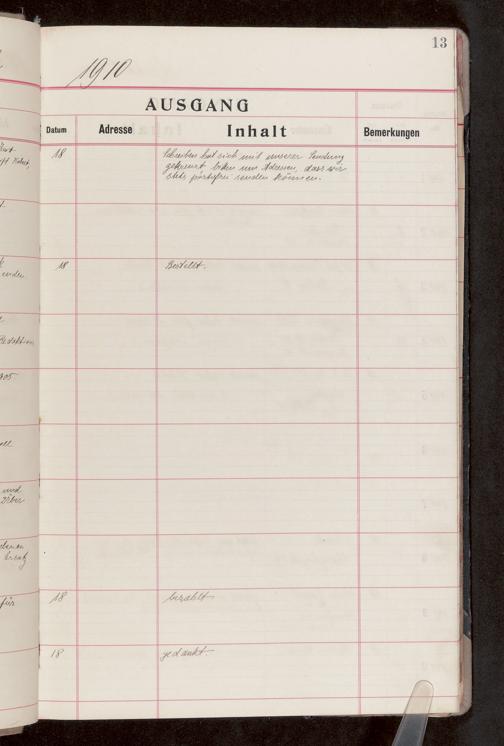 13
1910
AUSGANG
Datum Adresse Inhalt Bemerkungen
18 Schreiben hat sich mit unserer Sendung
gekreuzt bitten um Adressen, dass wir
stets portofrei senden können.
18 Bestellt.
18 bezahlt
18 gedankt.
ender
Redaktion
905
und
für